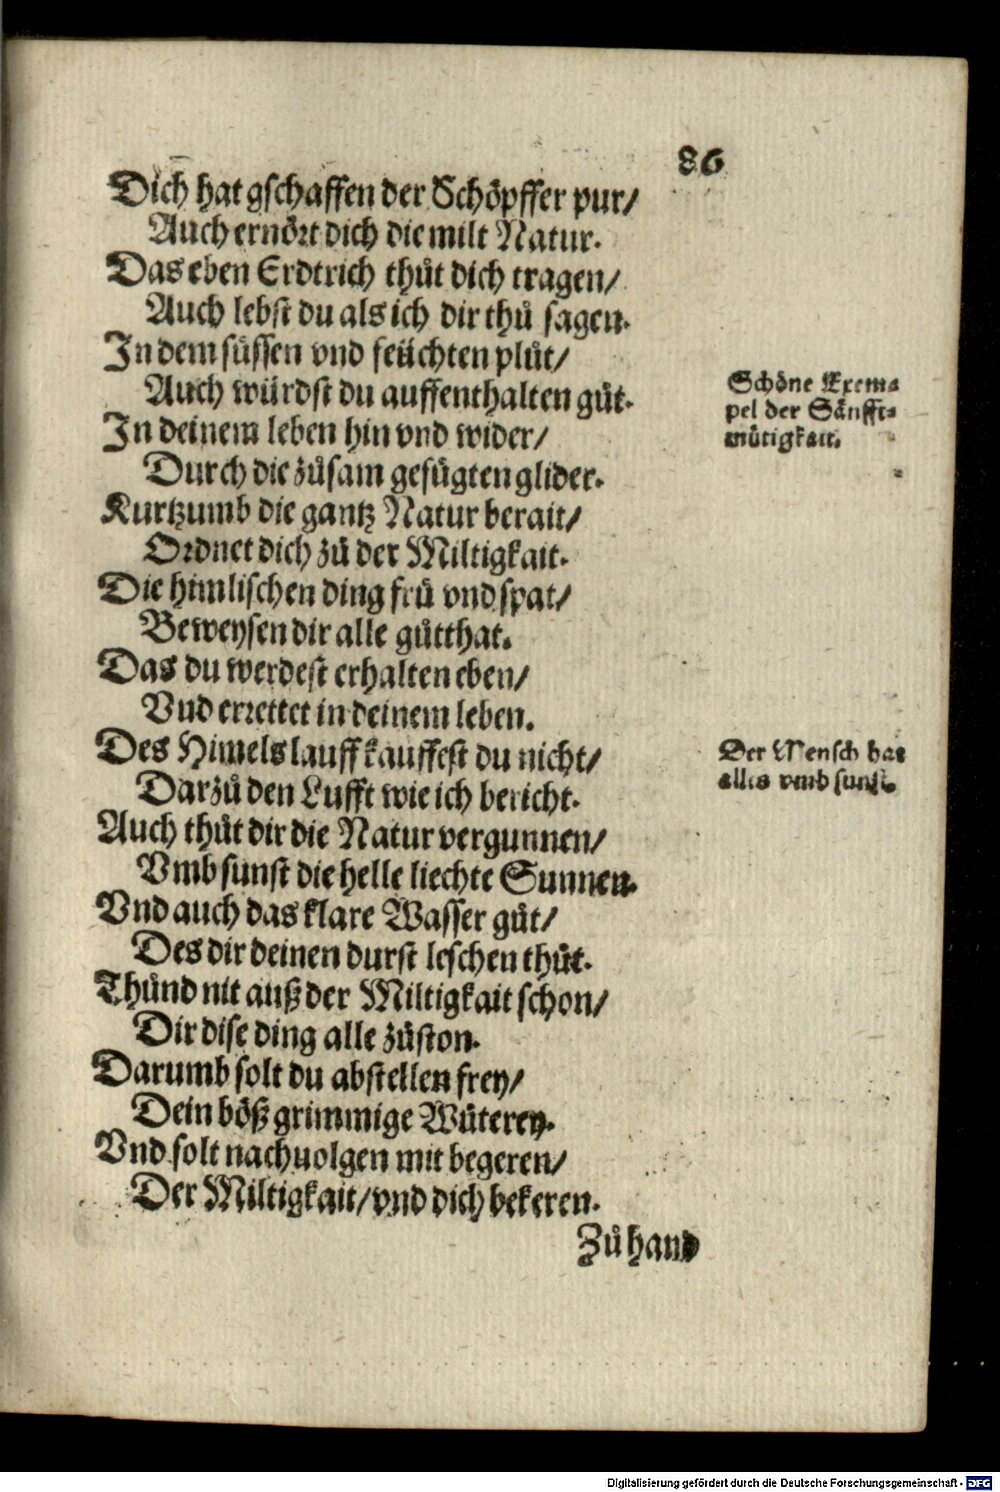 86
Dich hat gschaffen der Schöpffer pur/
Auch ernört dich die milt Natur.
Das eben Erdtrich thůt dich tragen/
Auch lebst du als ich dir thů sagen.
In dem süssen vnd feüchten plůt/
Auch würdst du auffenthalten gůt.
In deinem leben hin vnd wider/
Durch die zůsam gefügten glider.
Kurtzumb die gantz Natur berait/
Ordnet dich zů der Miltigkait.
Die himlischen ding frů vnd spat/
Beweysen dir alle gůtthat.
Das du werdest erhalten eben/
Vnd errettet in deinem leben.
Des Himels lauff kauffest du nicht/
Darzů den Lufft wie ich bericht.
Auch thůt dir die Natur vergunnen/
Vmb sunst die helle liechte Sunnen.
Vnd auch das klare Wasser gůt/
Des dir deinen durst leschen thůt.
Thůnd nit auß der Miltigkait schon/
Dir dise ding alle zůston.
Darumb solt du abstellen frey/
Dein böß grimmige Wüterey.
Vnd solt nachuolgen mit begeren/
Der Miltigkait/vnd dich bekeren.
Zů hand
Schöne Exem-
pel der Sänfft-
mütigkait.
Der Mensch hat
alles vmb sunst.
Digitalisierung gefördert durch die Deutsche Forschungsgemeinschaft - DFG